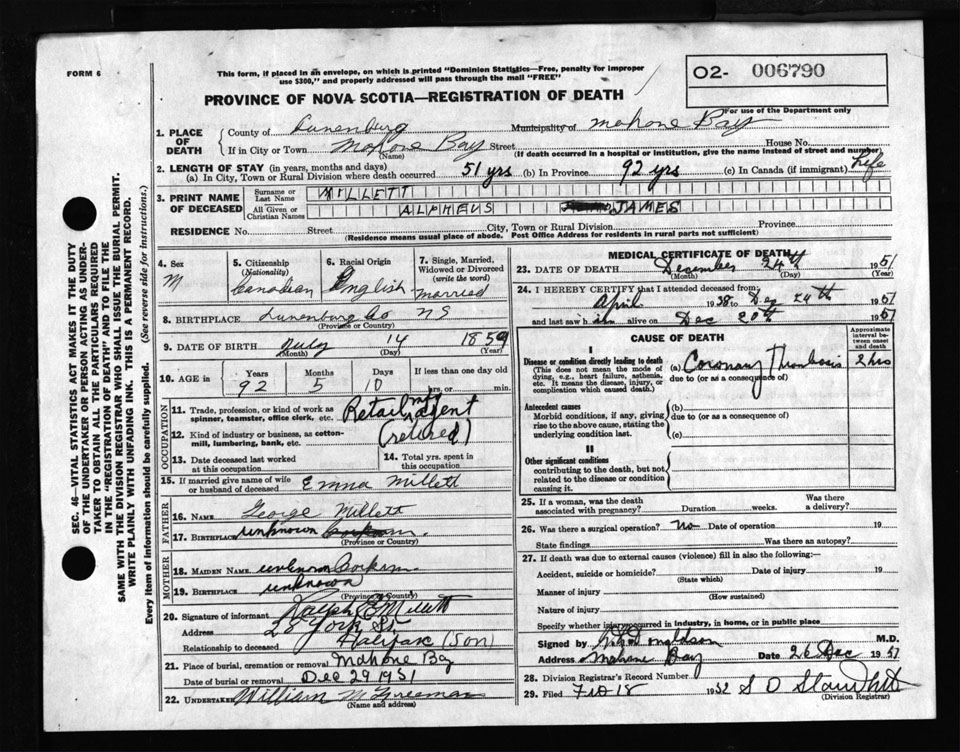 FORM 6
This form, if placed in an envelope, on which is printed "Dominion Statistics—Free, penalty for improper
use $300," and properly addressed will pass through the mail "FREE"
O2- 006790
PROVINCE OF NOVA SCOTIA—REGISTRATION OF DEATH
For use of the Department only
1. PLACE OF DEATH
County of Lunenburg Municipality of Mahone Bay
If in City or Town Mahone Bay Street House No.
(Name) (If death occurred in a hospital or institution, give the name instead of street and number)
2. LENGTH OF STAY (in years, months and days)
(a) In City, Town or Rural Division where death occurred 51 yrs (b) In Province 92 yrs (c) In Canada (if immigrant) Life
3. PRINT NAME OF DECEASED
Surname or Last Name MILLETT
All Given or Christian Names ALPHEUS JAMES
RESIDENCE No. Street City, Town or Rural Division Province
(Residence means usual place of abode. Post Office Address for residents in rural parts not sufficient)
SEC. 46—VITAL STATISTICS ACT MAKES IT THE DUTY
OF THE UNDERTAKER OR PERSON ACTING AS UNDER-
TAKER TO OBTAIN ALL THE PARTICULARS REQUIRED
IN THE "REGISTRATION OF DEATH" AND TO FILE THE
SAME WITH THE DIVISION REGISTRAR WHO SHALL ISSUE THE BURIAL PERMIT.
WRITE PLAINLY WITH UNFADING INK. THIS IS A PERMANENT RECORD.
Every item of information should be carefully supplied. (See reverse side for instructions.)
4. Sex
M
5. Citizenship
(Nationality)
Canadian
6. Racial Origin
English
7. Single, Married,
Widowed or Divorced
(write the word)
Married
8. BIRTHPLACE Lunenburg Co NS
(Province or Country)
9. DATE OF BIRTH July 14 1859
(Month) (Day) (Year)
10. AGE in
Years 92
Months 5
Days 10
If less than one day old
hrs. or min.
OCCUPATION
11. Trade, profession, or kind of work as
spinner, teamster, office clerk, etc. Retail Agent
12. Kind of industry or business, as cotton-
mill, lumbering, bank, etc. (retired)
13. Date deceased last worked
at this occupation
14. Total yrs. spent in
this occupation
15. If married give name of wife
or husband of deceased Emma Millett
FATHER
16. NAME George Millett
17. BIRTHPLACE unknown
(Province or Country)
MOTHER
18. MAIDEN NAME unknown Corkum
19. BIRTHPLACE unknown
(Province or Country)
20. Signature of informant Ralph E Millett
Address 28 York St Halifax
Relationship to deceased (Son)
21. Place of burial, cremation or removal Mahone Bay
Date of burial or removal Dec 29 1951
22. UNDERTAKER William M Freeman
(Name and address)
MEDICAL CERTIFICATE OF DEATH
23. DATE OF DEATH December 24th 1951
(Month) (Day) (Year)
24. I HEREBY CERTIFY that I attended deceased from:
April 1938 to Dec 24th 1951
and last saw h im alive on Dec 20th 1951
CAUSE OF DEATH
Approximate interval between onset and death
I
Disease or condition directly leading to death
(This does not mean the mode of
dying, e.g., heart failure, asthenia,
etc. It means the disease, injury, or
complication which caused death.)
(a) Coronary Thrombosis 2 hrs
due to (or as a consequence of)
Antecedent causes
Morbid conditions, if any, giving
rise to the above cause, stating the
underlying condition last.
(b)
due to (or as a consequence of)
(c)
II
Other significant conditions
contributing to the death, but not
related to the disease or condition
causing it.
25. If a woman, was the death
associated with pregnancy? Duration weeks. Was there a delivery?
26. Was there surgical operation? No Date of operation 19
State findings Was there an autopsy?
27. If death was due to external causes (violence) fill in also the following:—
Accident, suicide or homicide? Date of injury 19
(State which)
Manner of injury
(How sustained)
Nature of injury
Specify whether injury occurred in industry, in home, or in public place
Signed by Donaldson M.D.
Address Mahone Bay Date 26 Dec 1951
28. Division Registrar's Record Number
29. Filed 1952
(Division Registrar)